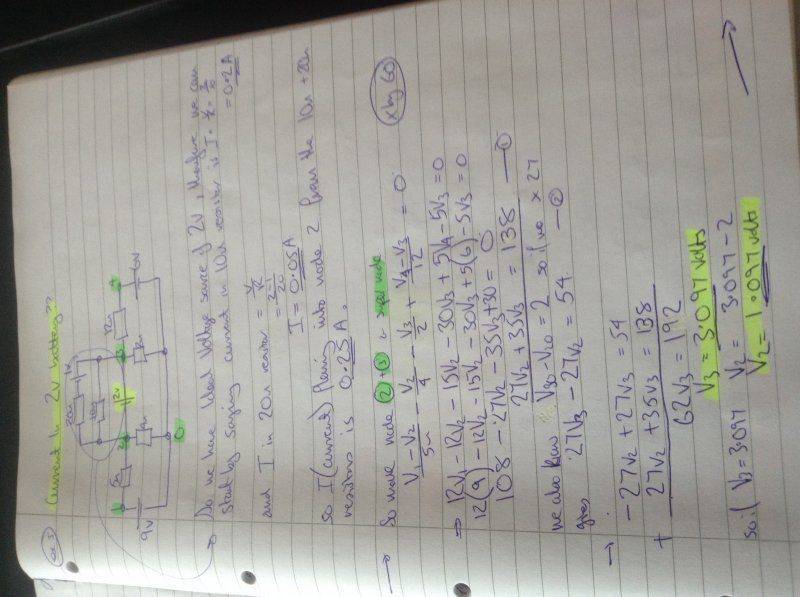 Ex 3
Current in 2V battery??
20Ω
10Ω
1 5Ω 2 2V 3 12Ω 4
9V 4Ω 2Ω 6V
0
So we have Ideal Voltage source of 2V, therefore we can
start by saying current in 10Ω resistor is I = V/R = 2/10
= 0.2A
and I in 20Ω resistor = V/R
= 2/20
I = 0.05A
so I (current) flowing into node 2 from the 10Ω + 20Ω
resistors is 0.25A.
→ So node node 2 + 3 is super node
V₁ - V₂ / 5Ω - V₂ / 4 - V₃ / 2 + V₄ - V₃ / 12 = 0 (x by 60)
→ 12V₁ - 12V₂ - 15V₂ - 30V₃ + 5V₄ - 5V₃ = 0
12(9) - 12V₂ - 15V₂ - 30V₃ + 5(6) - 5V₃ = 0
108 - 27V₂ - 35V₃ + 30 = 0
27V₂ + 35V₃ = 138 — ①
we also know V₃₀ - V₂₀ = 2 so if we x 27
gives 27V₃ - 27V₂ = 54 — ②
→ - 27V₂ + 27V₃ = 54
+ 27V₂ + 35V₃ = 138
62V₃ = 192
V₃ = 3.097 volts
so if V₃ = 3.097 V₂ = 3.097 - 2
V₂ = 1.097 volts →